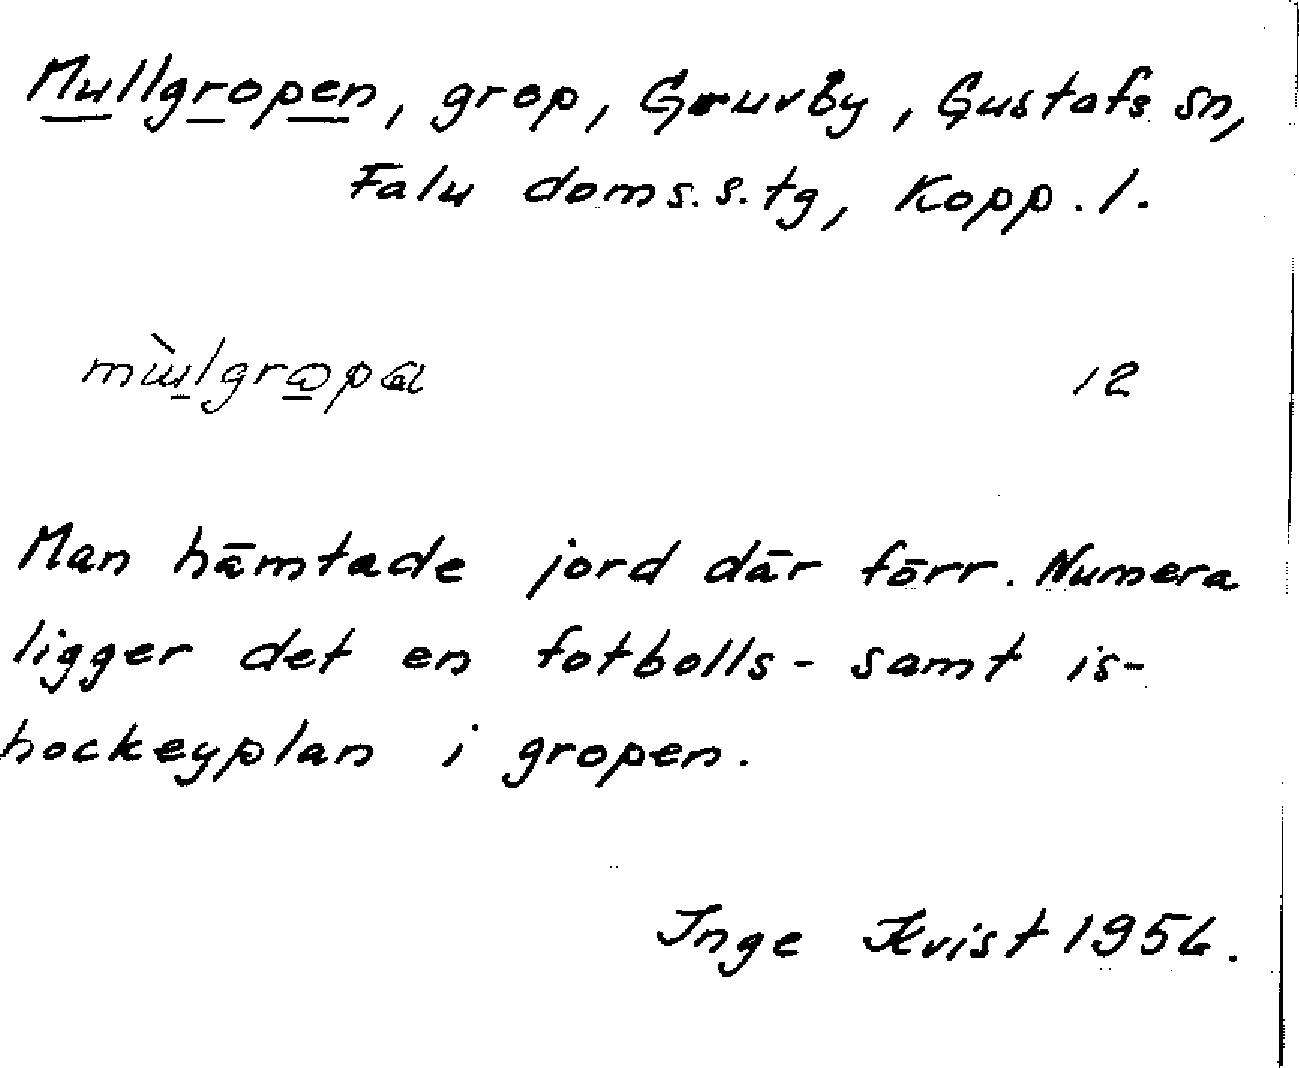 Mullgropen, grop, Gruvby, Gustafs sn,
Falu doms.s.tg, Kopp. l.
12
Man hämtade jord där förr. Numera
ligger det en fotbolls- samt is-
hockeyplan i gropen.
Inge Kvist 1956.